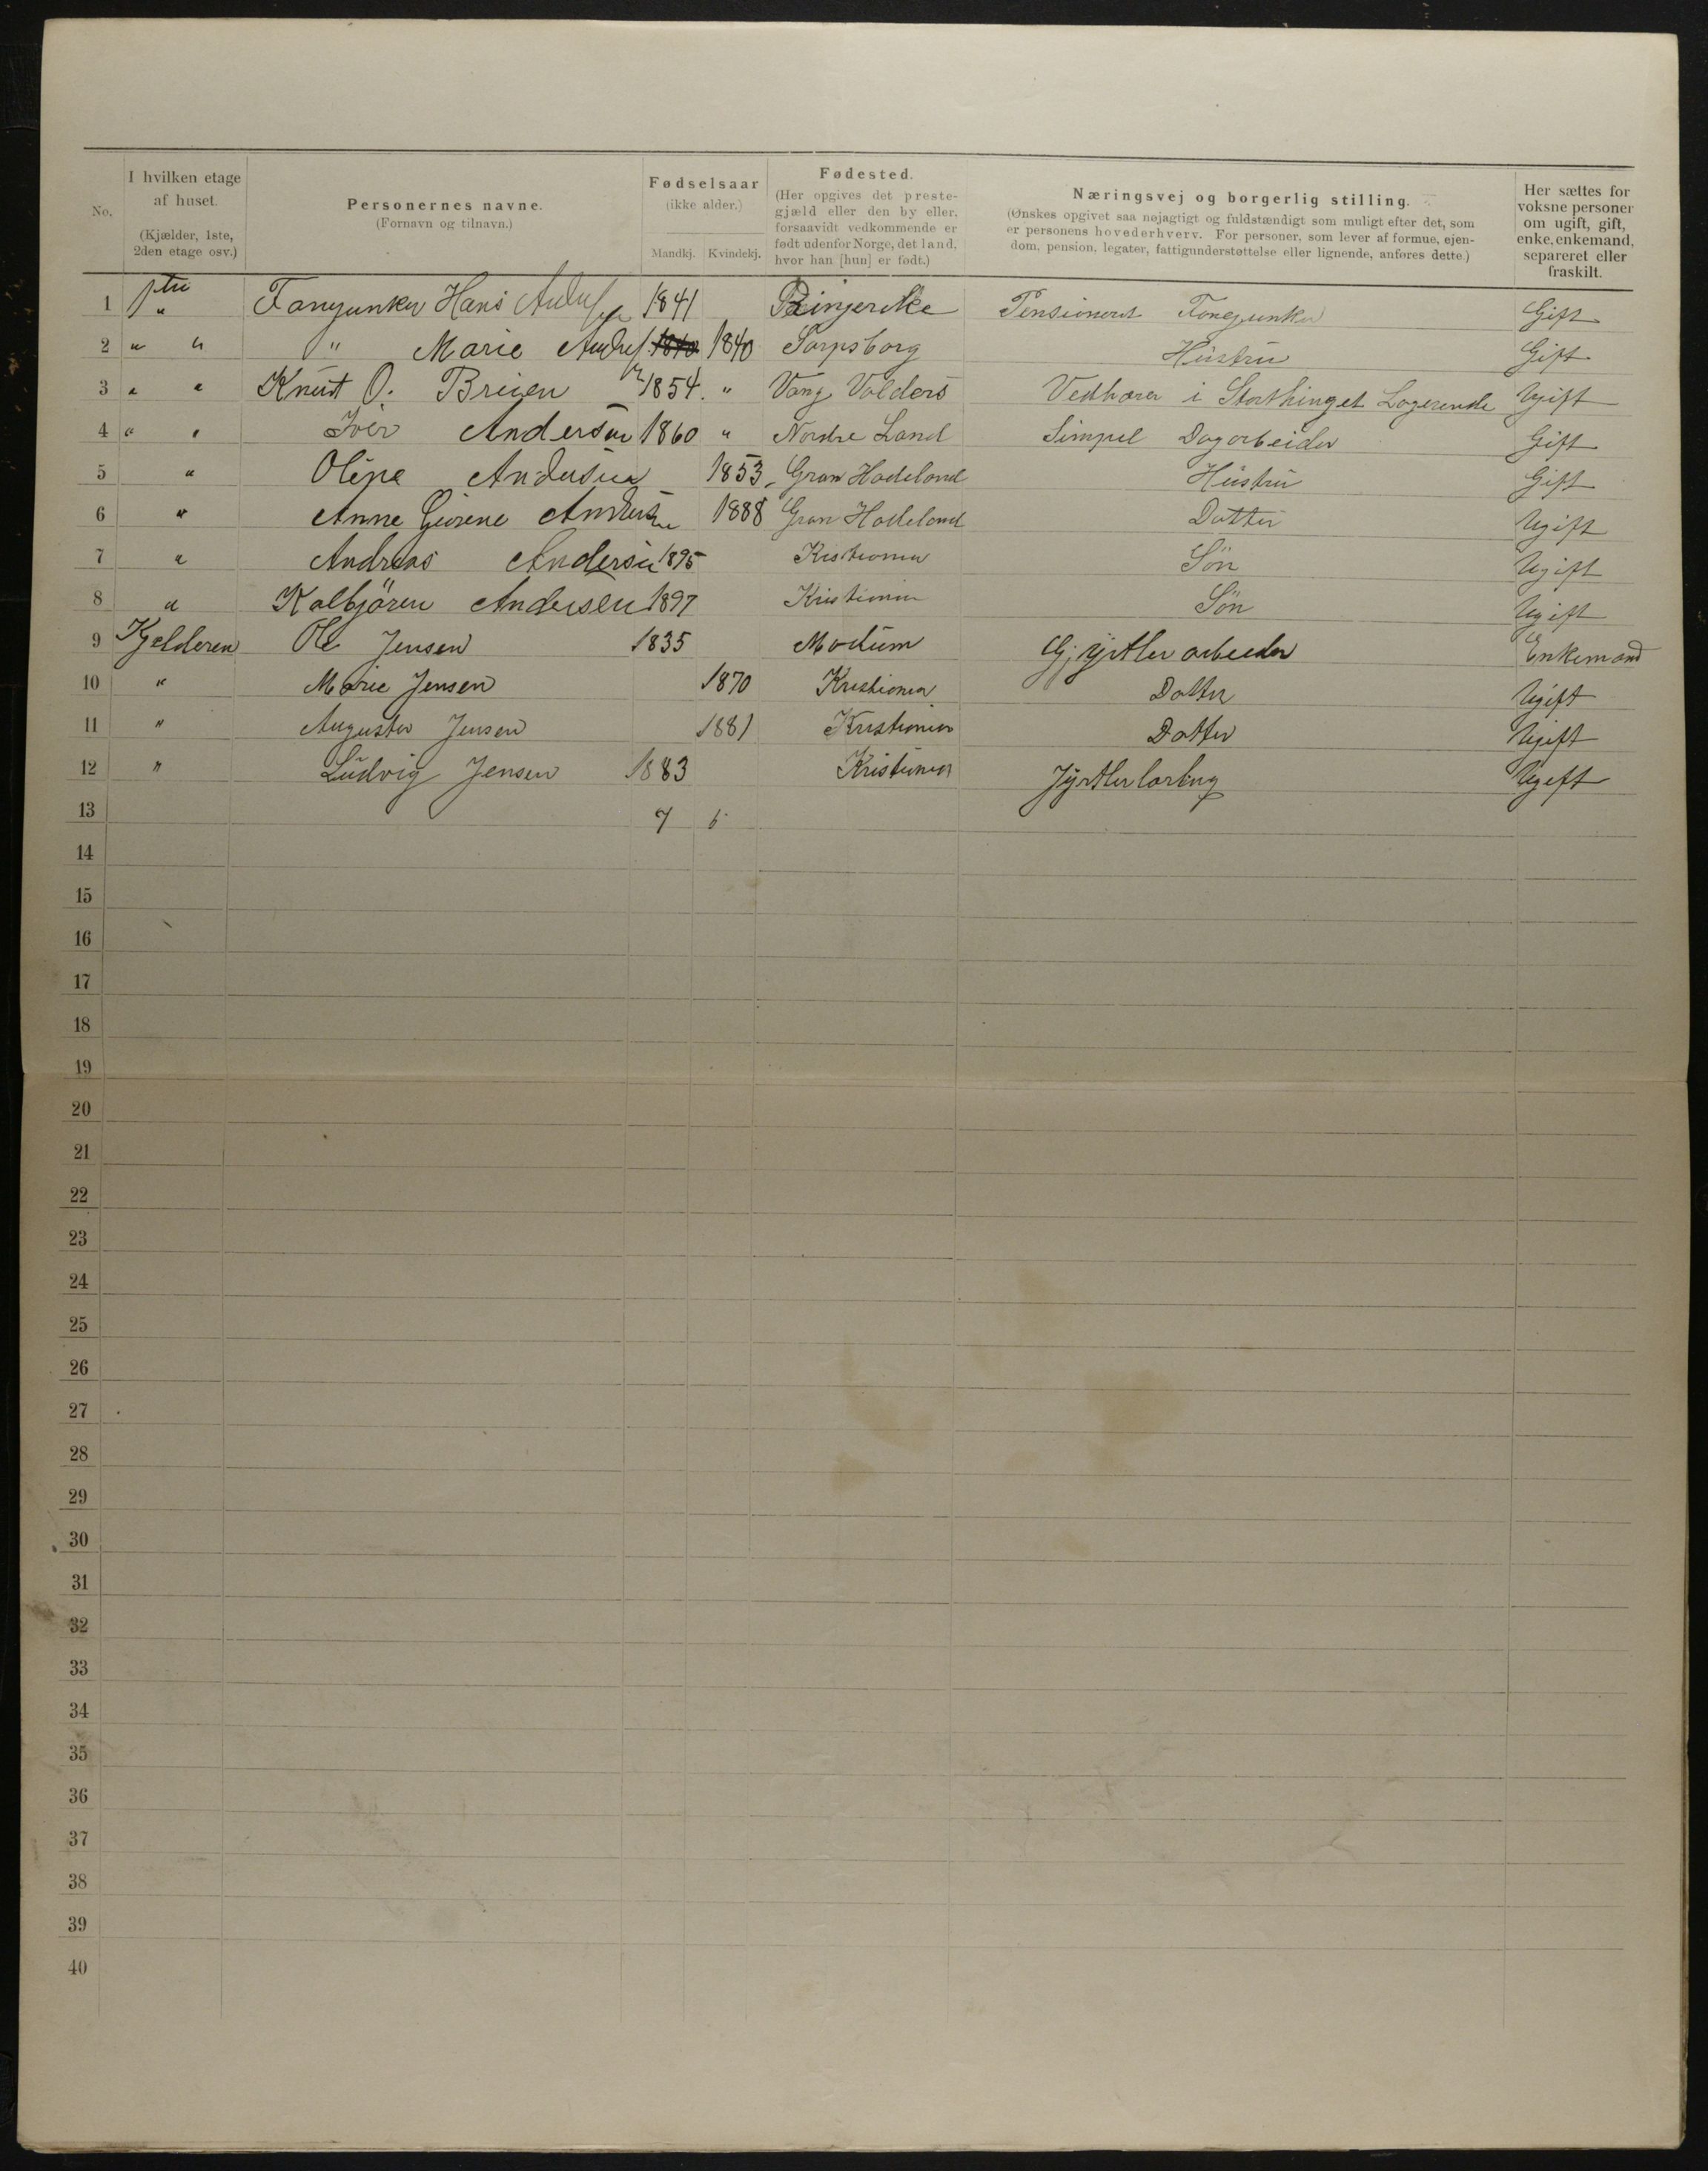 No. I hvilken etage af huset. (Kjælder, 1ste, 2den etage osv.) Personernes navne. (Fornavn og tilnavn.) Fødselsaar (ikke alder.) Mandkj. Kvindekj. Fødested. (Her opgives det prestegjæld eller den by eller, forsaavidt vedkommende er født udenfor Norge, det land, hvor han [hun] er født.) Næringsvej og borgerlig stilling. (Ønskes opgivet saa nøjagtigt og fuldstændigt som muligt efter det, som er personens hovederhverv. For personer, som lever af formue, ejendom, pension, legater, fattigunderstøttelse eller lignende, anføres dette.) Her sættes for voksne personer om ugift, gift, enke, enkemand, separeret eller fraskilt.
1 Hans 1841 Ringerike Pensioneret Gift
2 " " " Marie 1840 1840 Sarpsborg Hustru Gift
3 " " Knut O. Bruen 1854. " Vang Valders Vedbærer i Storthinget Logerende Ugift
4 " " Iver Andersen 1860 " Nordre Land Simpel Dagarbeider Gift
5 " Andersen 1853 Gran Hadeland Hustru Gift
6 " Anne Andersen 1888 Gran Hadeland Datter Ugift
7 " Andreas Andersen 1895 Kristiania Søn Ugift
8 " Kolbjören Andersen 1897 Kristiania Sön Ugift
9 Kjelderen Ole Jensen 1835 Modum Gjørtler arbeider Enkemand
10 " Marie Jensen 1870 Kristiania Datter Ugift
11 " Augusta Jensen 1881 Kristiania Datter Ugift
12 " Ludvig Jensen 1883 Kristiania Ugift
13 7 5
14
15
16
17
18
19
20
21
22
23
24
25
26
27
28
29
30
31
32
33
34
35
36
37
38
39
40